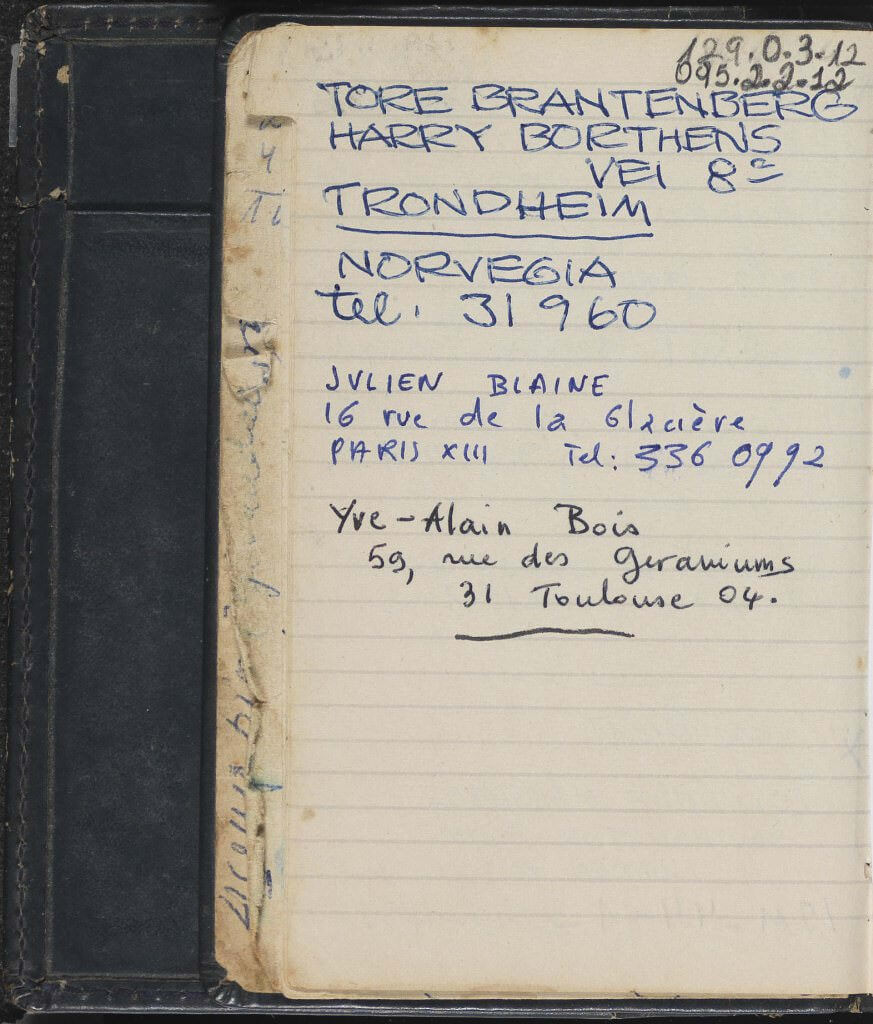 129.0.3.12
095.2.2.12
TORE BRANTENBERG
HARRY BORTHENS
VEI 8c
TRONDHEIM
NORVEGIA
tel. 31960
JULIEN BLAINE
16 rue de la Glacière
PARIS XIII Tel: 336 0992
Yve-Alain Bois
59, rue des Geraniums
31 Toulouse 04.